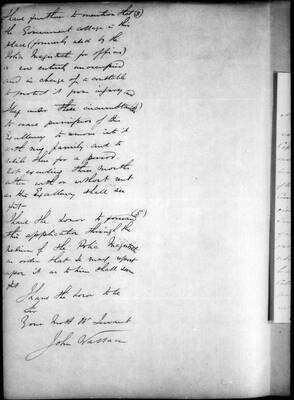 I have further to mention that (3)
the Government cottage in this
place (formerly used by the
Police Magistrate for offices)
is now entirely unoccupied
and in charge of a constable
to protect it from injury
I beg under these circumstances (4)
to crave permission of His
Excellency to remove into it
with my family and to
retain this for a period
not exceeding three months
either with or without rent
as His Excellency shall see
fit
I have the honor to forward (5)
this application through the
medium of the Police Magistrate
in order that he may report
upon it as to him shall seem
fit
I have the honor to be
Sir
Your Most Ob Servant
John Watson